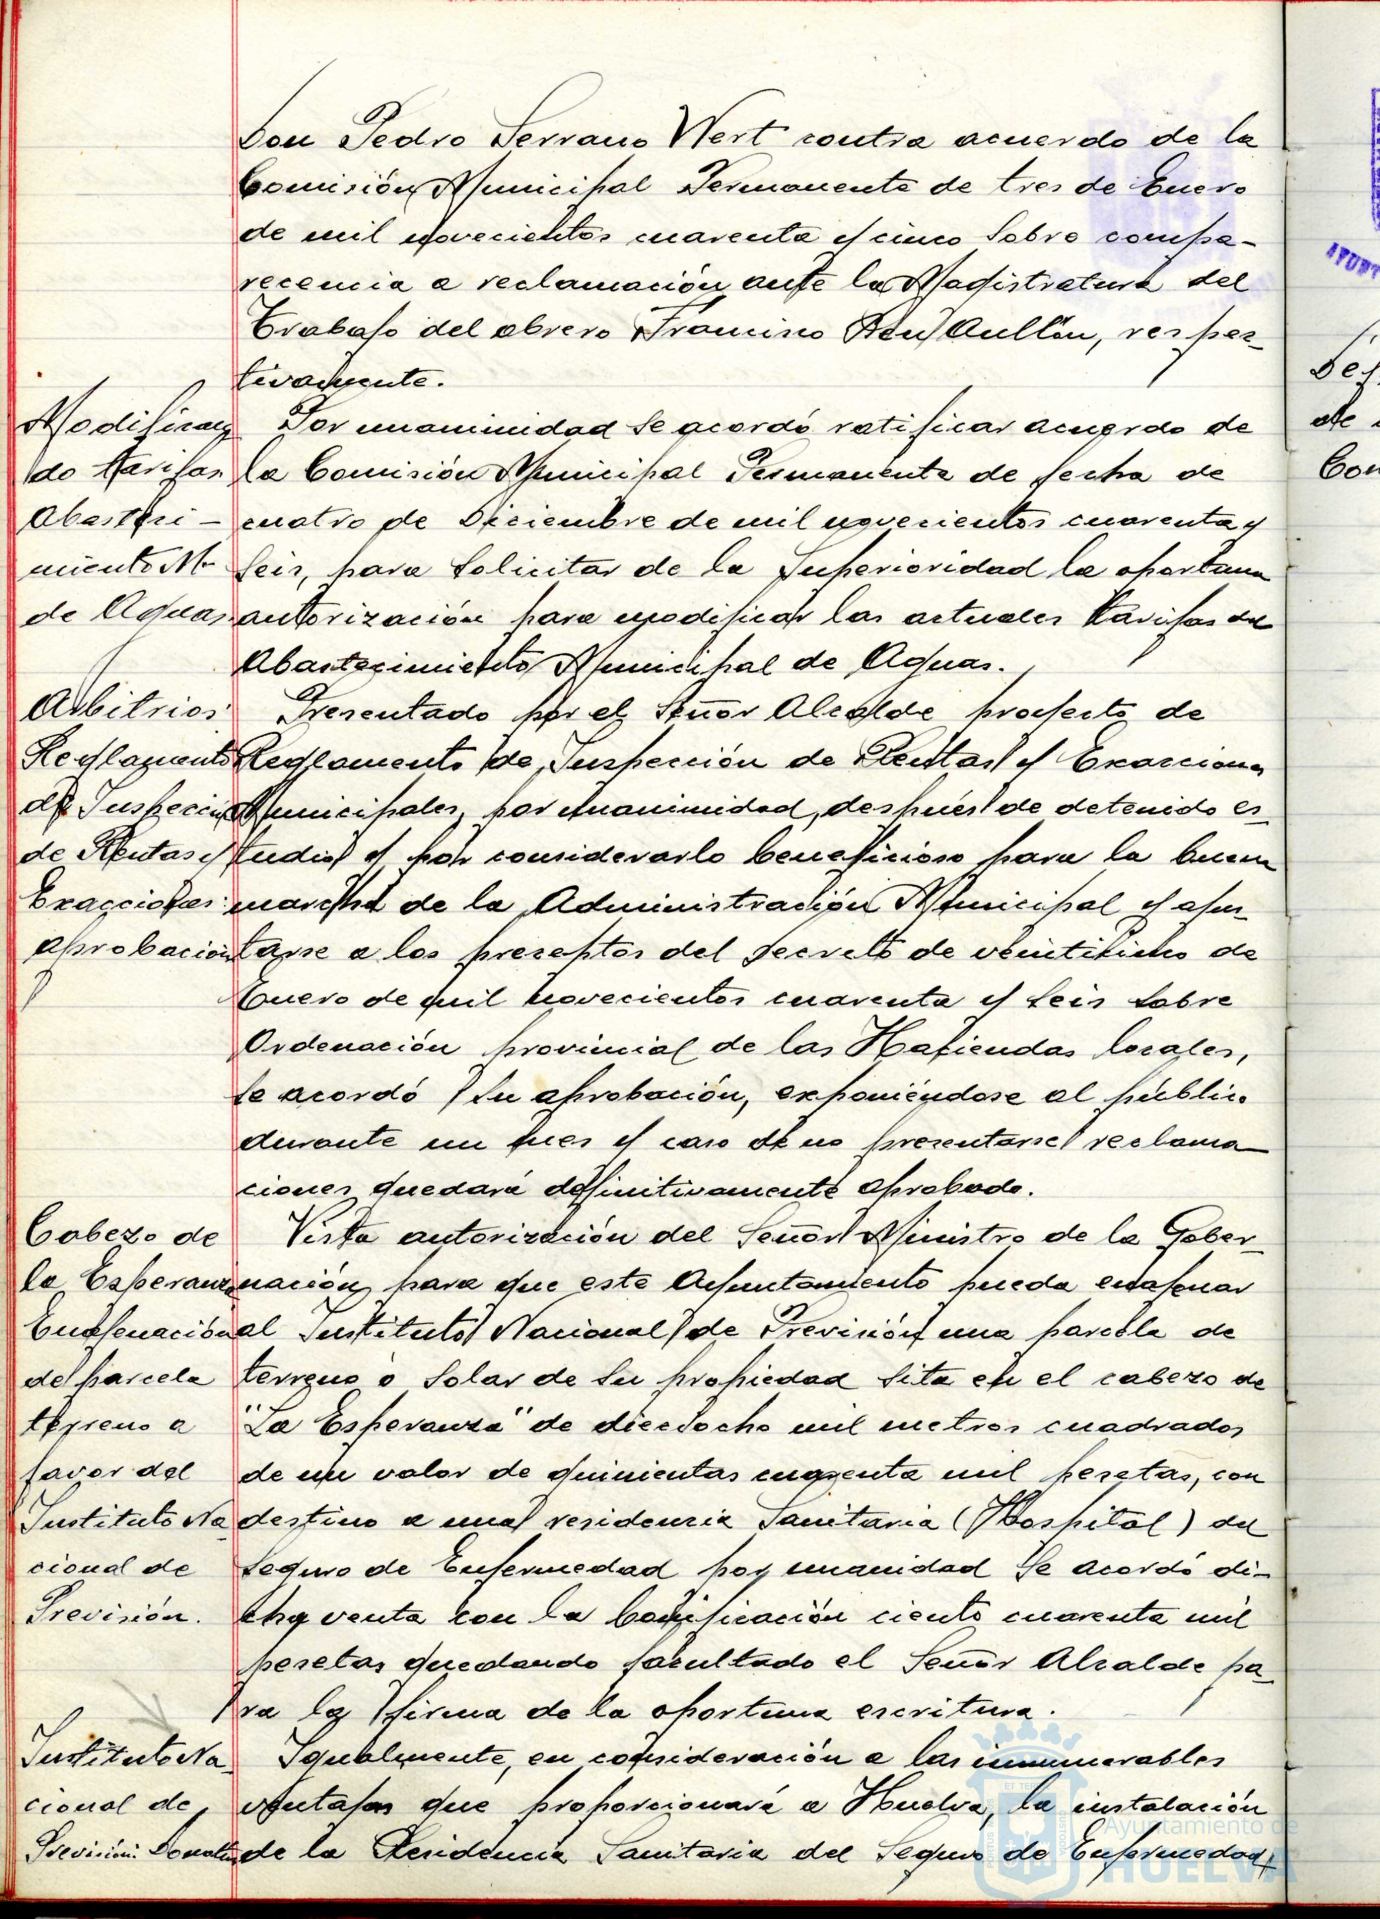 Don Pedro Serrano Wert contra acuerdo de la
Comisión Municipal Permanente de tres de Enero
de mil novecientos cuarenta y cinco sobre compa-
recencia a reclamación ante la Magistratura del
Trabajo del obrero Francisco Aullón, respec-
tivamente.
Modifican
do tarifas
Abasteci-
miento M.
de Aguas
Por unanimidad se acordó ratificar acuerdo de
la Comisión Municipal Permanente de fecha de
cuatro de Diciembre de mil novecientos cuarenta y
seis, para solicitar de la Superioridad la oportuna
autorización para modificar las actuales tarifas del
Abastecimiento Municipal de Aguas.
Arbitrios
Reglamento
de Inspección
de Rentas y
Exacciones:
aprobación
Presentado por el Señor Alcalde proyecto de
Reglamento de Inspección de Rentas y Exacciones
Municipales, por unanimidad, después de detenido es-
tudio y por considerarlo beneficioso para la buena
marcha de la Administración Municipal y ajus-
tarse a los preceptos del Decreto de veinticinco de
Enero de mil novecientos cuarenta y seis sobre
Ordenación provincial de las Haciendas locales,
se acordó su aprobación, exponiéndose al público
durante un mes y caso de no presentarse reclama
ciones quedará definitivamente aprobado.
Cabezo de
la Esperanza
Enajenación
de parcela
terreno a
favor del
Instituto Na
cional de
Previsión.
Vista autorización del Señor Ministro de la Gober-
nación para que este Ayuntamiento pueda enajenar
al Instituto Nacional de Previsión una parcela de
terreno o solar de su propiedad sita en el cabezo de
"La Esperanza" de dieciocho mil metros cuadrados
de un valor de quinientas cuarenta mil pesetas, con
destino a una residencia Sanitaria (Hospital) del
Seguro de Enfermedad por unanidad se acordó di-
cha venta con la bonificación ciento cuarenta mil
pesetas quedando facultado el Señor Alcalde pa-
ra la firma de la oportuna escritura.
Instituto Na-
cional de
Previsión: Donativo
Igualmente, en consideración a las innumerables
ventajas que proporcionará a Huelva, la instalación
de la Residencia Sanitaria del Seguro de Enfermedad,
Ayuntamiento de
HUELVA
de
Con